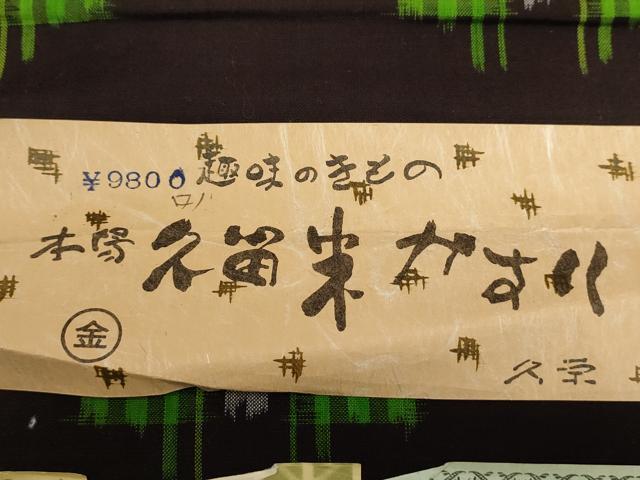 ¥9800 趣味のきもの
ロハ
本場 久留米かすり
金
久栄